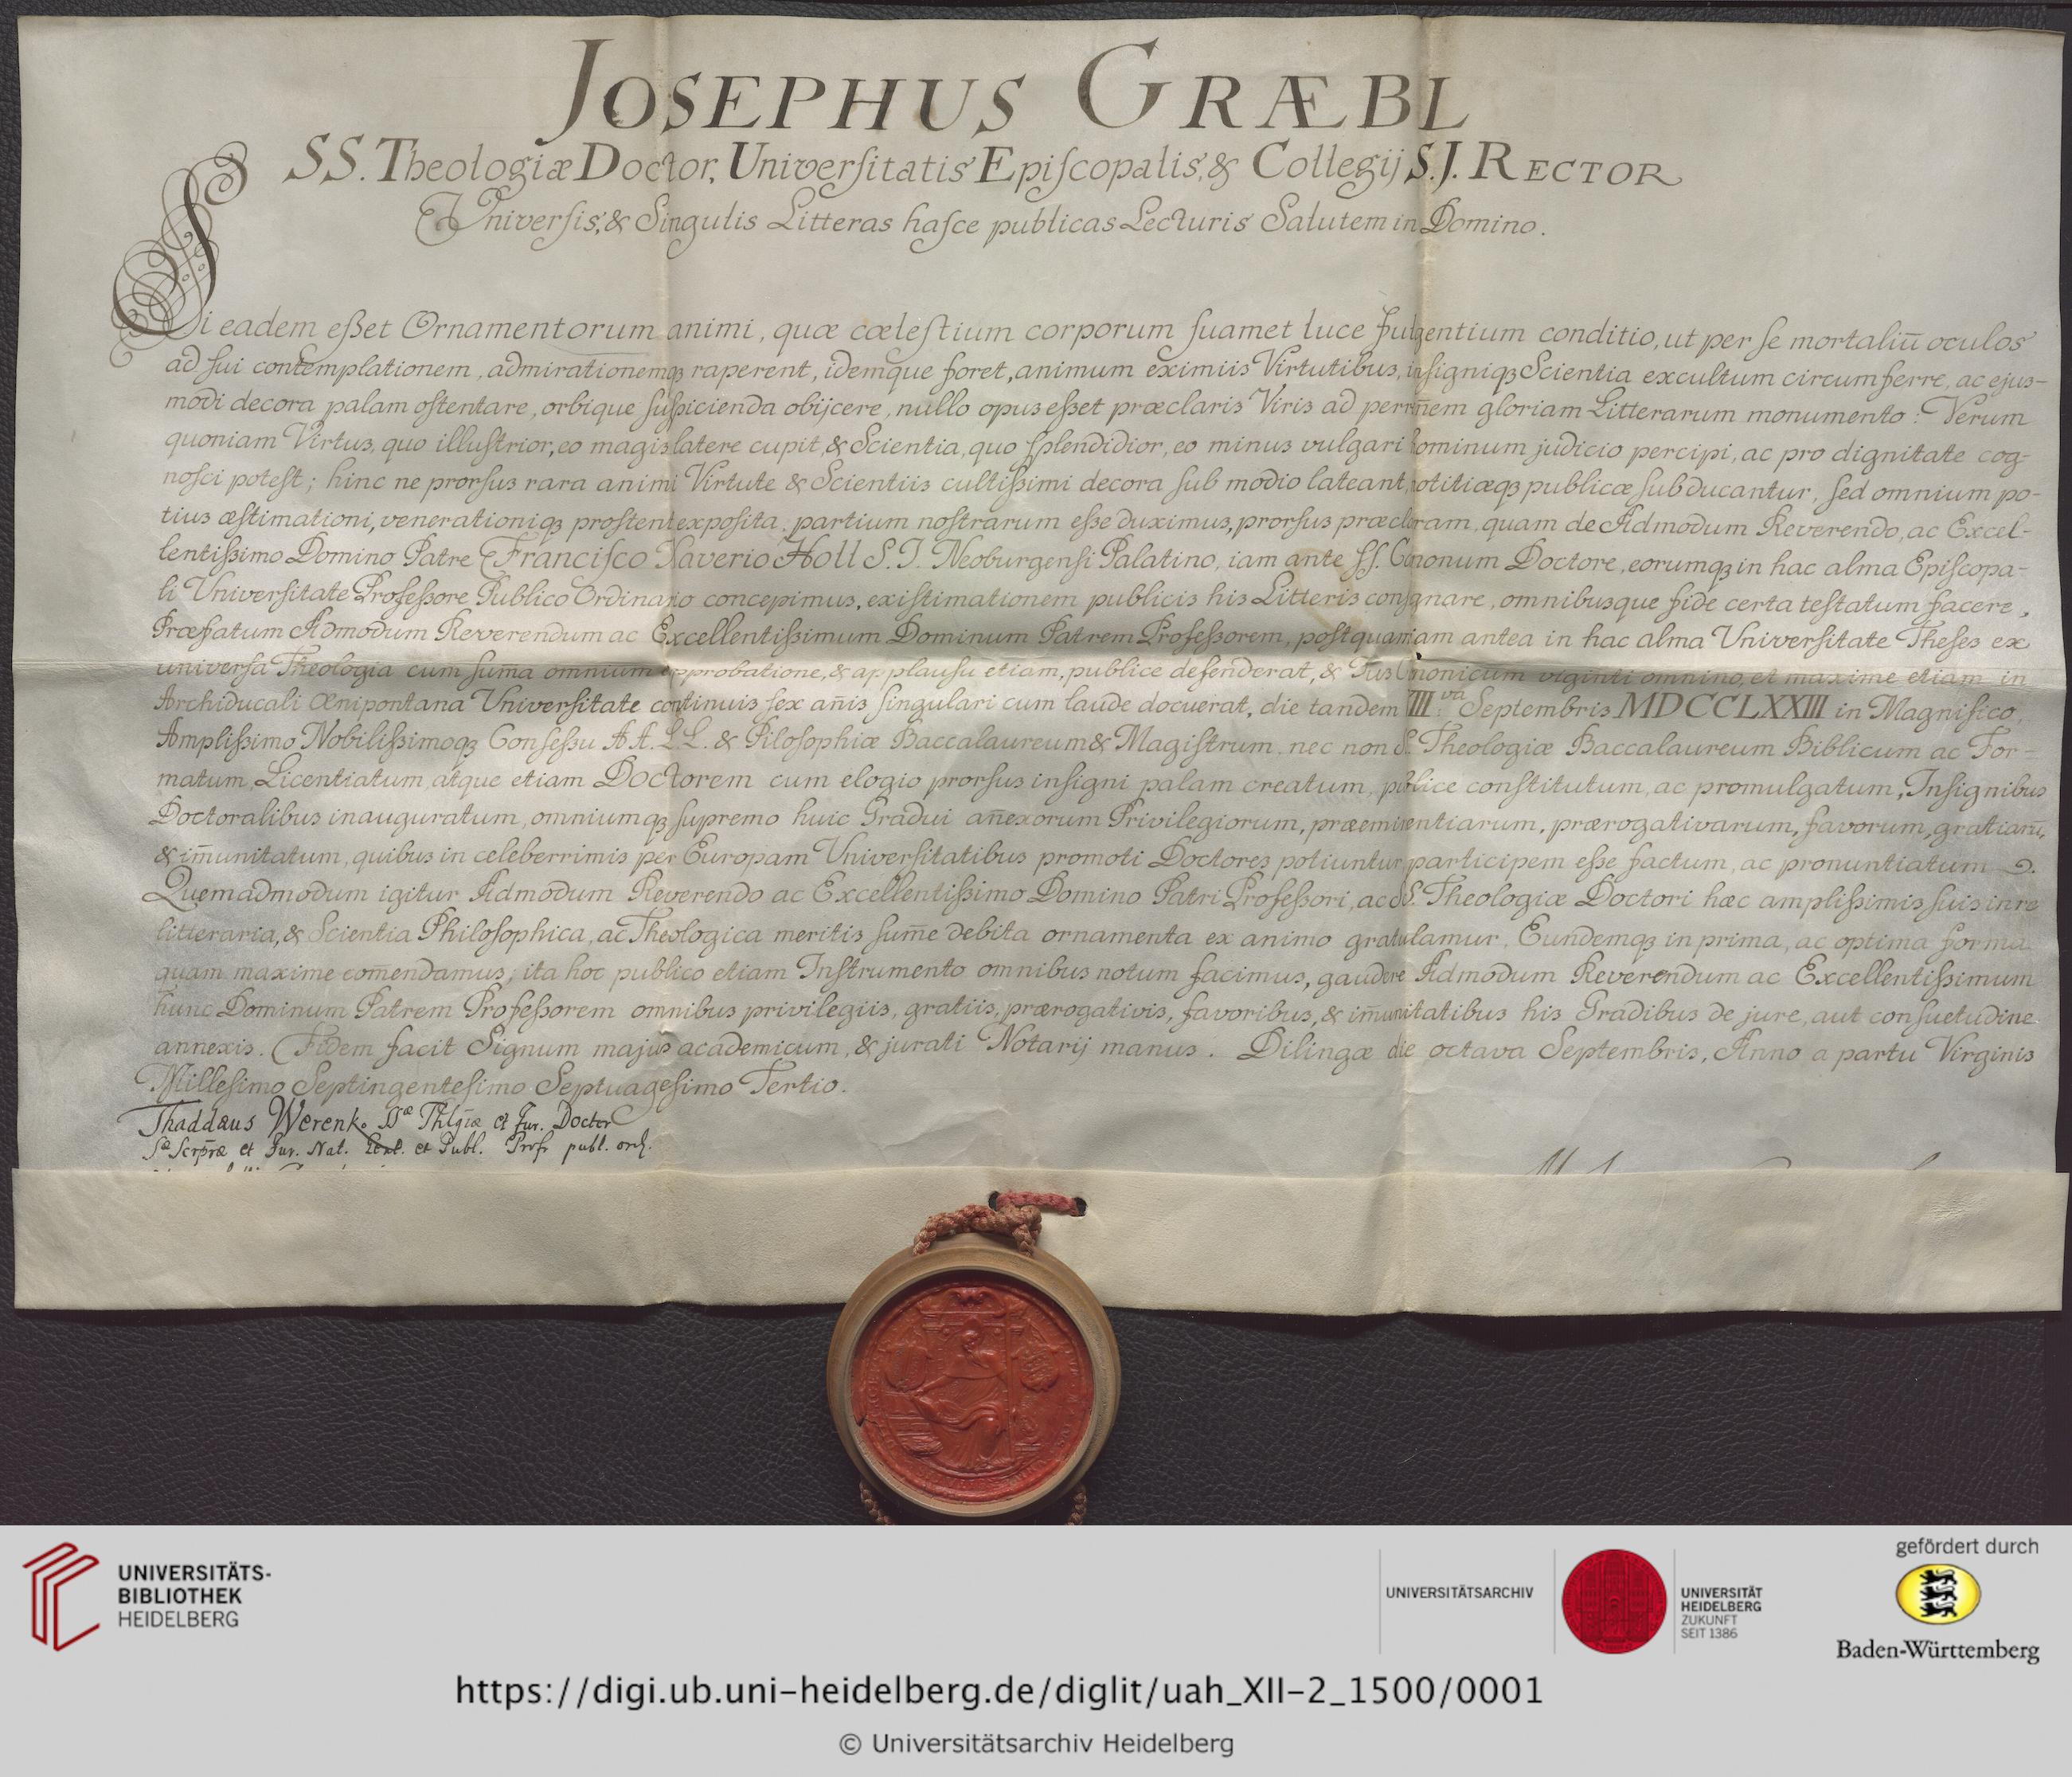 JOSEPHUS GRÆBL
SS. Theologiæ Doctor, Universitatis Episcopalis, & Collegij S.J. RECTOR
Universis, & Singulis Litteras hasce publicas Lecturis Salutem in Domino.
Si eadem eßet Ornamentorum animi, quæ cœlestium corporum suamet luce fulgentium conditio, ut per se mortaliū oculos
ad sui contemplationem, admirationemqȝ raperent, idemque foret, animum eximiis Virtutibus, insigniqȝ Scientia excultum circumferre, ac ejus-
modi decora palam ostentare, orbique suspicienda obijcere, nullo opus eßet præclaris Viris ad perēnem gloriam Litterarum monumento: Verum
quoniam Virtus, quo illustrior, eo magis latere cupit, & Scientia, quo splendidior, eo minus vulgari hominum judicio percipi, ac pro dignitate cog-
nosci potest; hinc ne prorsus rara animi Virtute & Scientiis cultißimi decora sub modio lateant, notitiæqȝ publicæ subducantur, sed omnium po-
tius æstimationi, venerationiqȝ prostent exposita, partium nostrarum eße duximus, prorsus præclaram, quam de Admodum Reverendo, ac Excel-
lentißimo Domino Patre Francisco Xaverio Holl S.J. Neoburgensi Palatino, iam ante SS. Canonum Doctore, eorumqȝ in hac alma Episcopa-
li Universitate Profeßore Publico Ordinario concepimus, existimationem publicis his Litteris consignare, omnibusque fide certa testatum facere,
Præfatum Admodum Reverendum ac Excellentißimum Dominum Patrem Profeßorem, postquam iam antea in hac alma Universitate Theses ex
universa Theologia cum sum̄a omnium approbatione, & applausu etiam, publice defenderat, & Jus Canonicum viginti omnino, et maxime etiam in
Archiducali Œnipontana Universitate continuis sex an̄is singulari cum laude docuerat, die tandem VIII.va Septembris MDCCLXXIII in Magnifico,
Amplißimo Nobilißimoqȝ Conseßu AA. LL. & Pilosophiæ Baccalaureum & Magistrum, nec non S. Theologiæ Baccalaureum Biblicum ac For-
matum, Licentiatum, atque etiam Doctorem cum elogio prorsus insigni palam creatum, publice constitutum, ac promulgatum, Insignibus
Doctoralibus inauguratum, omniumqȝ supremo huic Gradui an̄exorum Privilegiorum, præeminentiarum, prærogativarum, favorum, gratiarū,
& im̄unitatum, quibus in celeberrimis per Europam Universitatibus promoti Doctores potiuntur, participem eße factum, ac pronuntiatum
Quemadmodum igitur Admodum Reverendo ac Excellentißimo Domino Patri Profeßori, ac SS. Theologiæ Doctori hæc amplißimis suis in re
litteraria, & Scientia Philosophica, ac Theologica meritis sum̄e debita ornamenta ex animo gratulamur, Eundemqȝ in prima, ac optima forma
quam maxime com̄endamus; ita hoc publico etiam Instrumento omnibus notum facimus, gaudere Admodum Reverendum ac Excellentißimum
hunc Dominum Patrem Profeßorem omnibus privilegiis, gratiis, prærogativis, favoribus, & im̄unitatibus his Gradibus de jure, aut consuetudine
annexis. Fidem facit Signum majus academicum, & jurati Notarij manus. Dilingæ die octava Septembris, Anno a partu Virginis
Millesimo Septingentesimo Septuagesimo Tertio.
Thaddæus Werenko SSæ Thlgiæ et Jur. Doctor
Sæ Scrpræ et Jur. Nat. et Publ. Profr publ. ord.
UNIVERSITÄTS-
BIBLIOTHEK
HEIDELBERG
UNIVERSITÄTSARCHIV
UNIVERSITÄT
HEIDELBERG
ZUKUNFT
SEIT 1386
gefördert durch
Baden-Württemberg
https://digi.ub.uni-heidelberg.de/diglit/uah_XII-2_1500/0001
© Universitätsarchiv Heidelberg